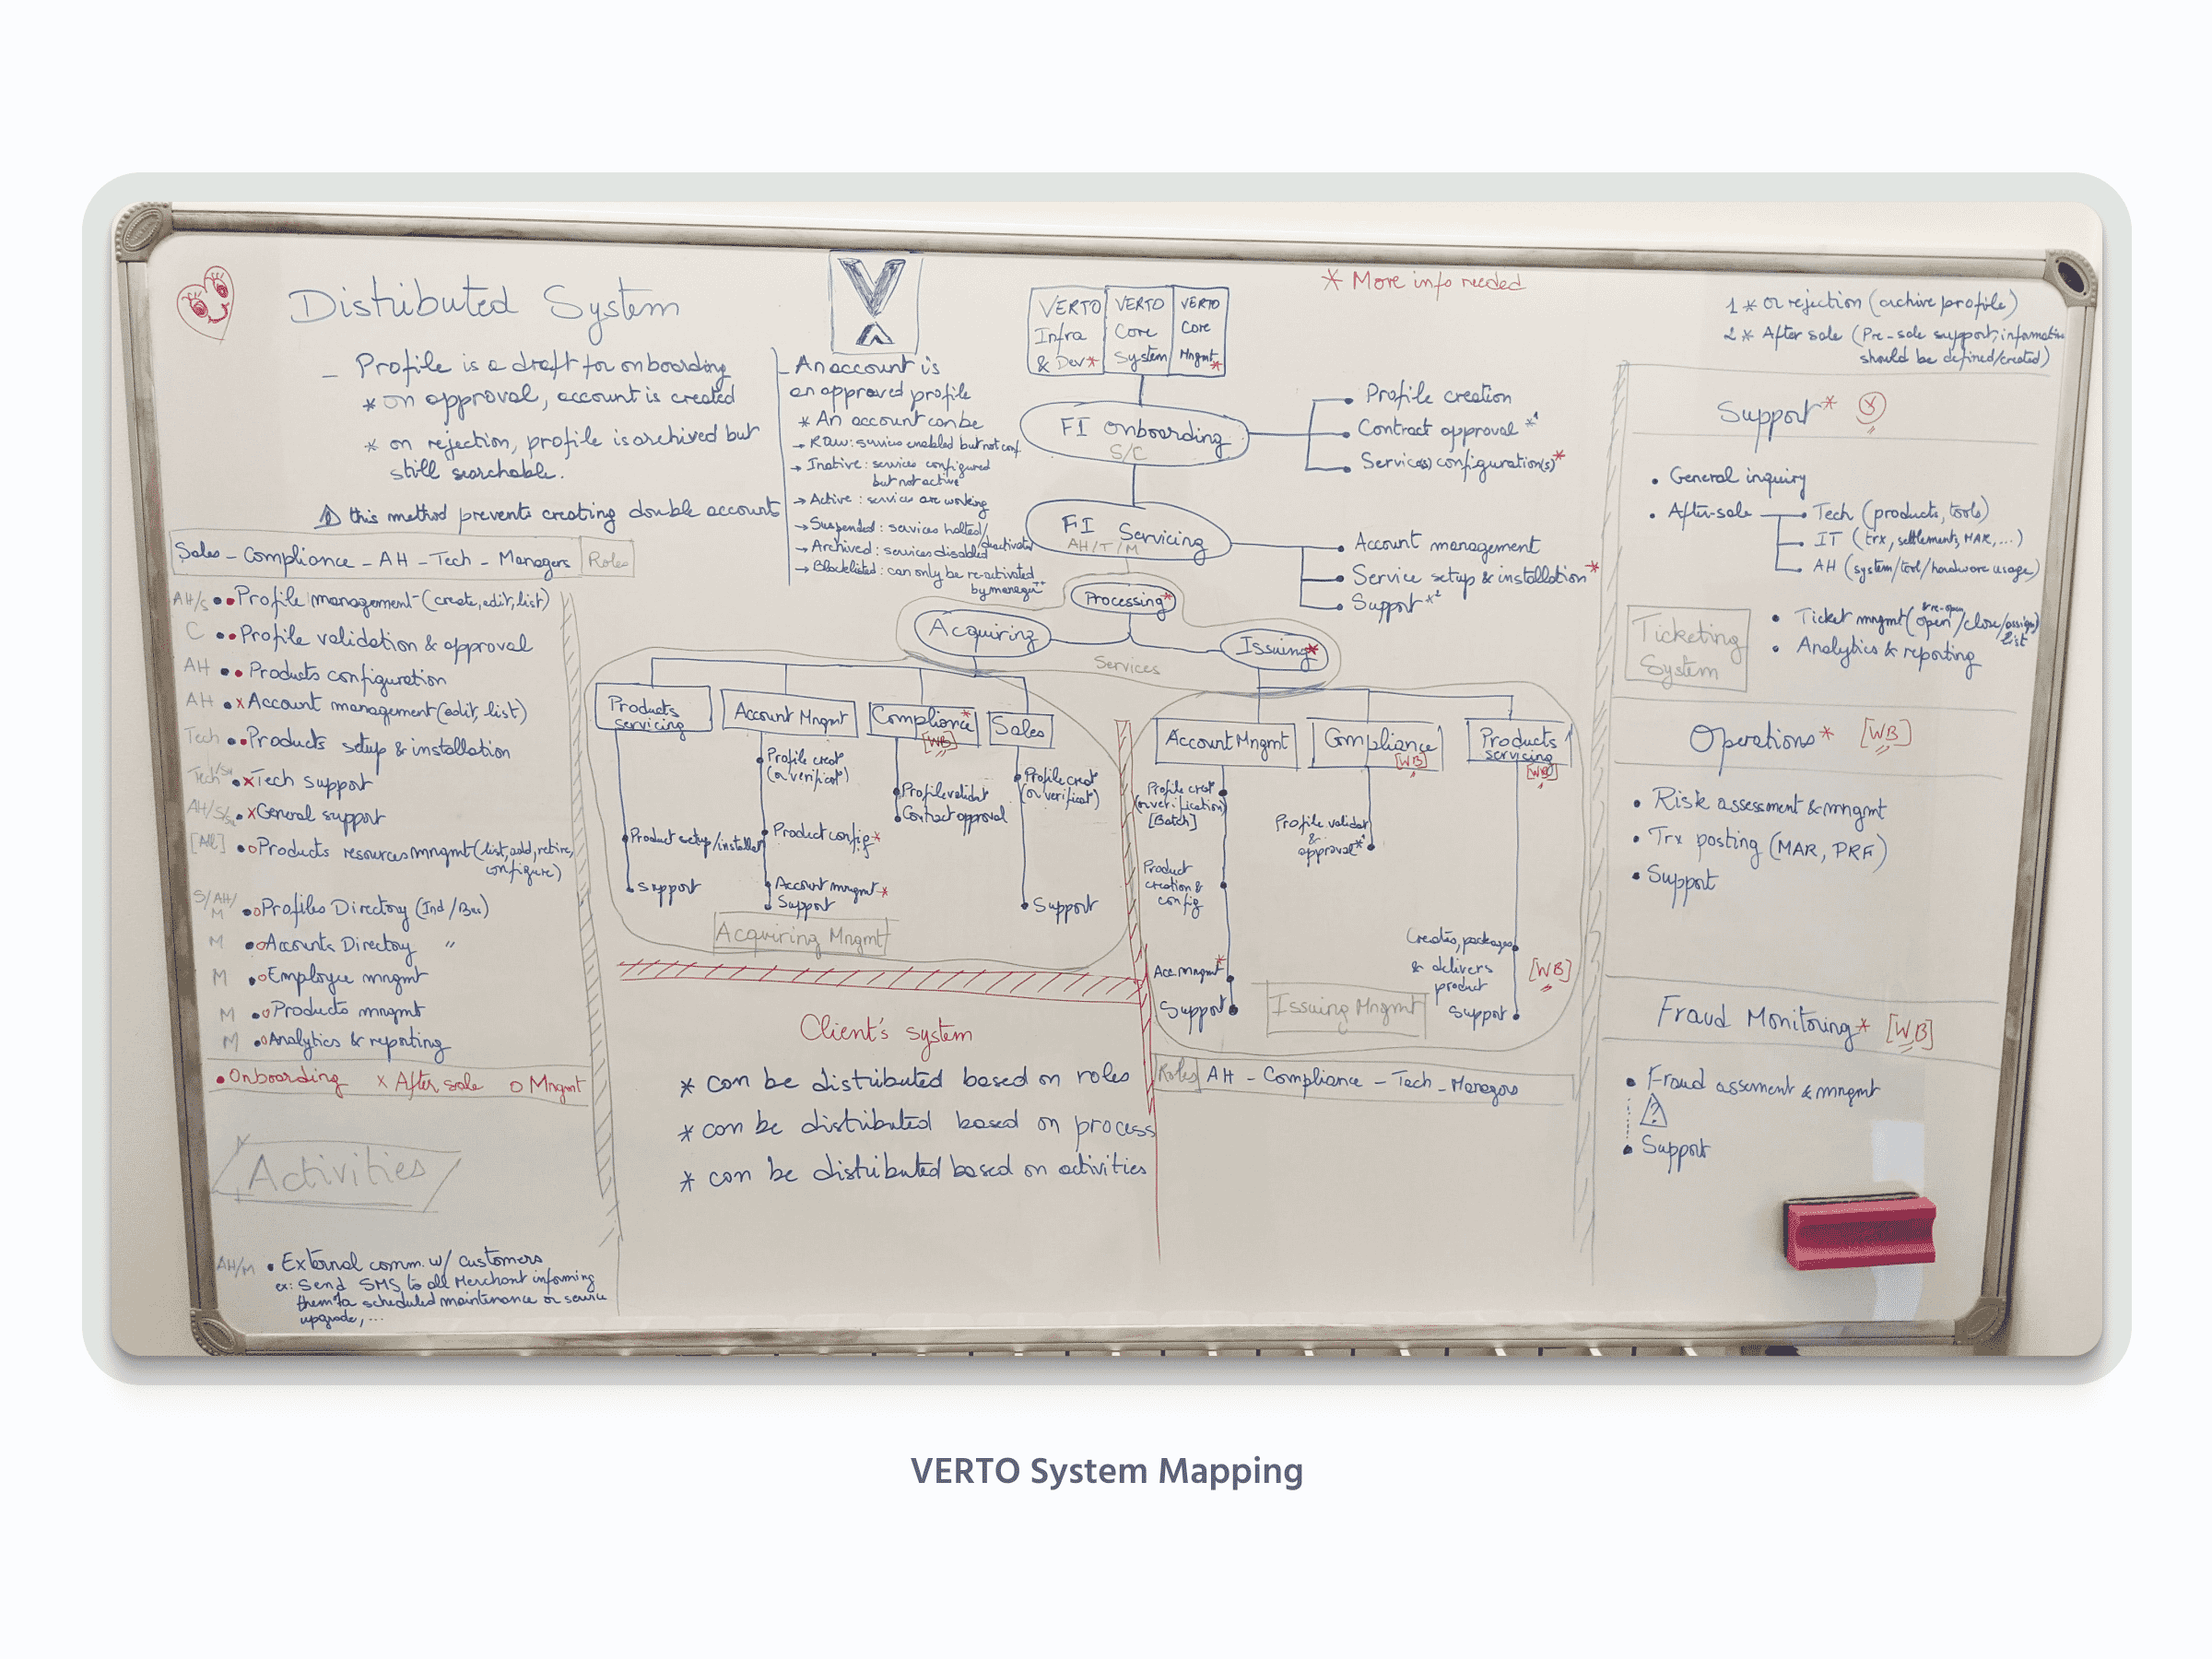 Distributed System
_ Profile is a draft for onboarding
* on approval, account is created
* on rejection, profile is archived but
still searchable.
this method prevents creating double accounts
- An account is
an approved profile
* An account can be
→ RAW: services enabled but not conf
→ Inative: services configured
but not active
→ Active: services are working
→ Suspended: services halted/deactivated
→ Archived: services disabled
→ Blacklisted: can only be re-activated
by manager
VERTO Infra & Dev*
VERTO Core System
VERTO Core Mngmt*
* More info needed
1 * or rejection (archive profile)
2 * After sale (Pre-sale support, information
should be defined/created)
FI Onboarding
S/C
• Profile creation
• Contract approval *1
• Service(s) configuration(s)*
FI Servicing
AH/T/M
• Account management
• Service setup & installation*
• Support *2
Processing*
Acquiring
Issuing*
Services
Sales - Compliance - AH - Tech - Managers
Roles
AH/S •• Profile management (create, edit, list)
C •• Profile validation & approval
AH •• Products configuration
AH • x Account management (edit, list)
Tech •• Products setup & installation
• x Tech support
• x General support
[All] • o Products resources mngmt (list, add, retire,
configure)
S/AH/M • o Profiles Directory (Ind/Bus)
M • o Accounts Directory "
M • o Employee mngmt
M • o Products mngmt
M • o Analytics & reporting
• Onboarding x After sale o Mngmt
Activities
AH/M • External comm. w/ customers
ex: Send SMS to all Merchant informing
them scheduled maintenance or service
upgrade, ...
Products
servicing
• Product setup/install
• Support
Account Mngmt
• Profile creat°
(or verificat°)
• Product config*
• Account mngmt*
• Support
Compliance*
[WB]
• Profile validat°
• Contract approval
Sales
• Profile creat°
(or verificat°)
• Support
Acquiring Mngmt
Account Mngmt
Profile creat°
(or verification)
[Batch]
Product
creation &
config
Acc. mngmt*
Support
Compliance
[WB]
Profile validat°
&
approval*1
Products
servicing
[WB]
Creates, packages
& delivers
product
[WB]
Support
Issuing Mngmt
Roles
AH - Compliance - Tech - Managers
Client's system
* can be distributed based on roles
* can be distributed based on process
* can be distributed based on activities
Support*
• General inquiry
• After-sale
• Tech (products, tools)
• IT (trx, settlements, MAR, ...)
• AH (system/tool/hardware usage)
Ticketing
System
• Ticket mngmt (open & re-open/close/assign/
list
• Analytics & reporting
Operations* [WB]
• Risk assessment & mngmt
• Trx posting (MAR, PRF)
• Support
Fraud Monitoring* [WB]
• Fraud assement & mngmt
?
• Support
VERTO System Mapping